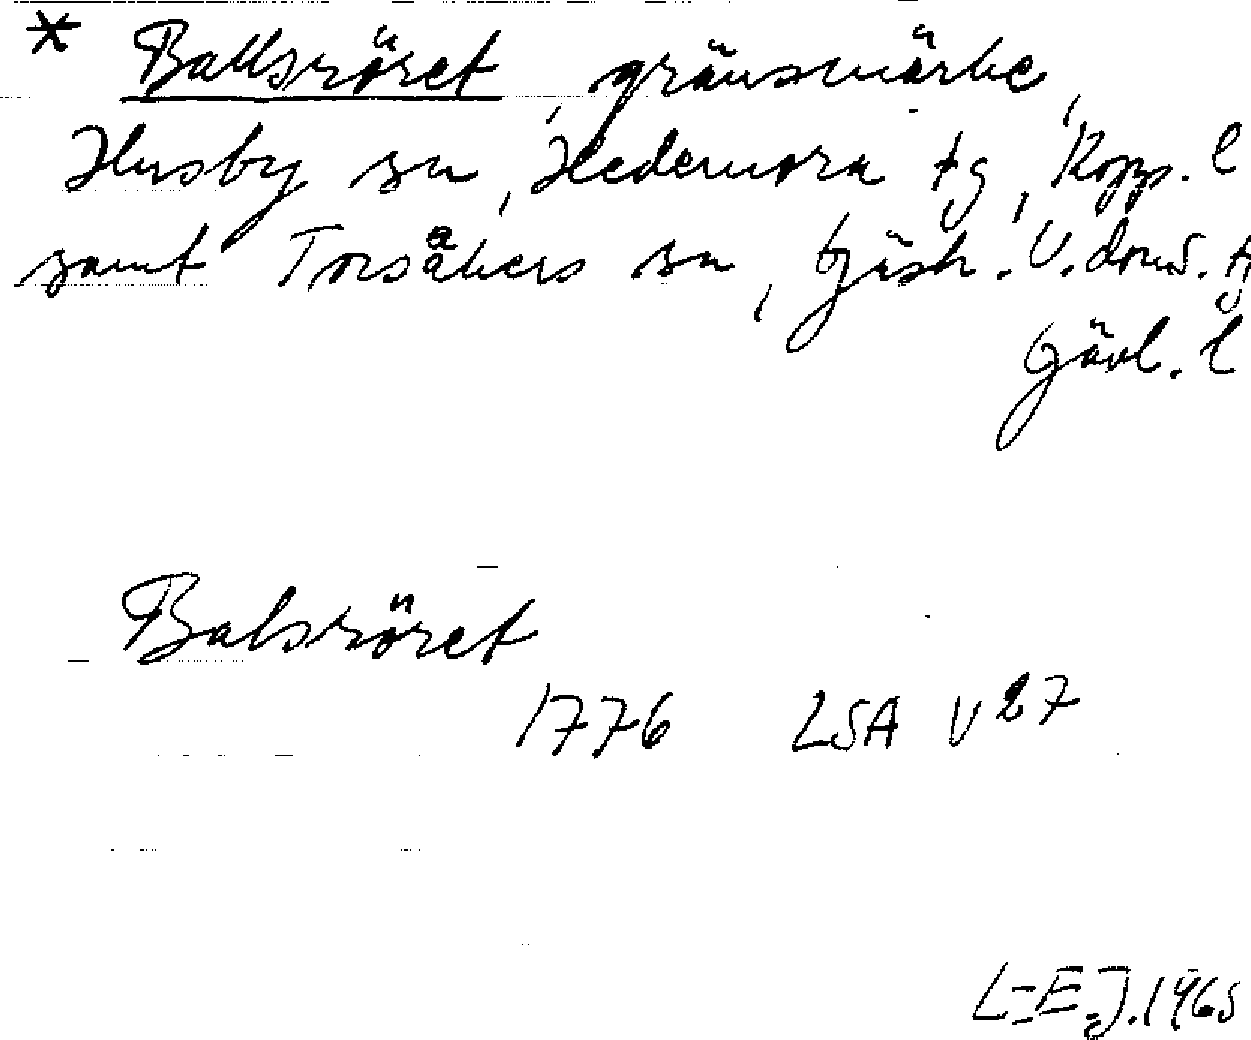 * Ballsröret, gränsmärke,
Husby sn, Hedemora tg, Kopp. l
samt Torsåkers sn, Gästr. V. doms. tg
Gävl. l
Balsröret
1776 LSA V 27
L-E.J. 1965